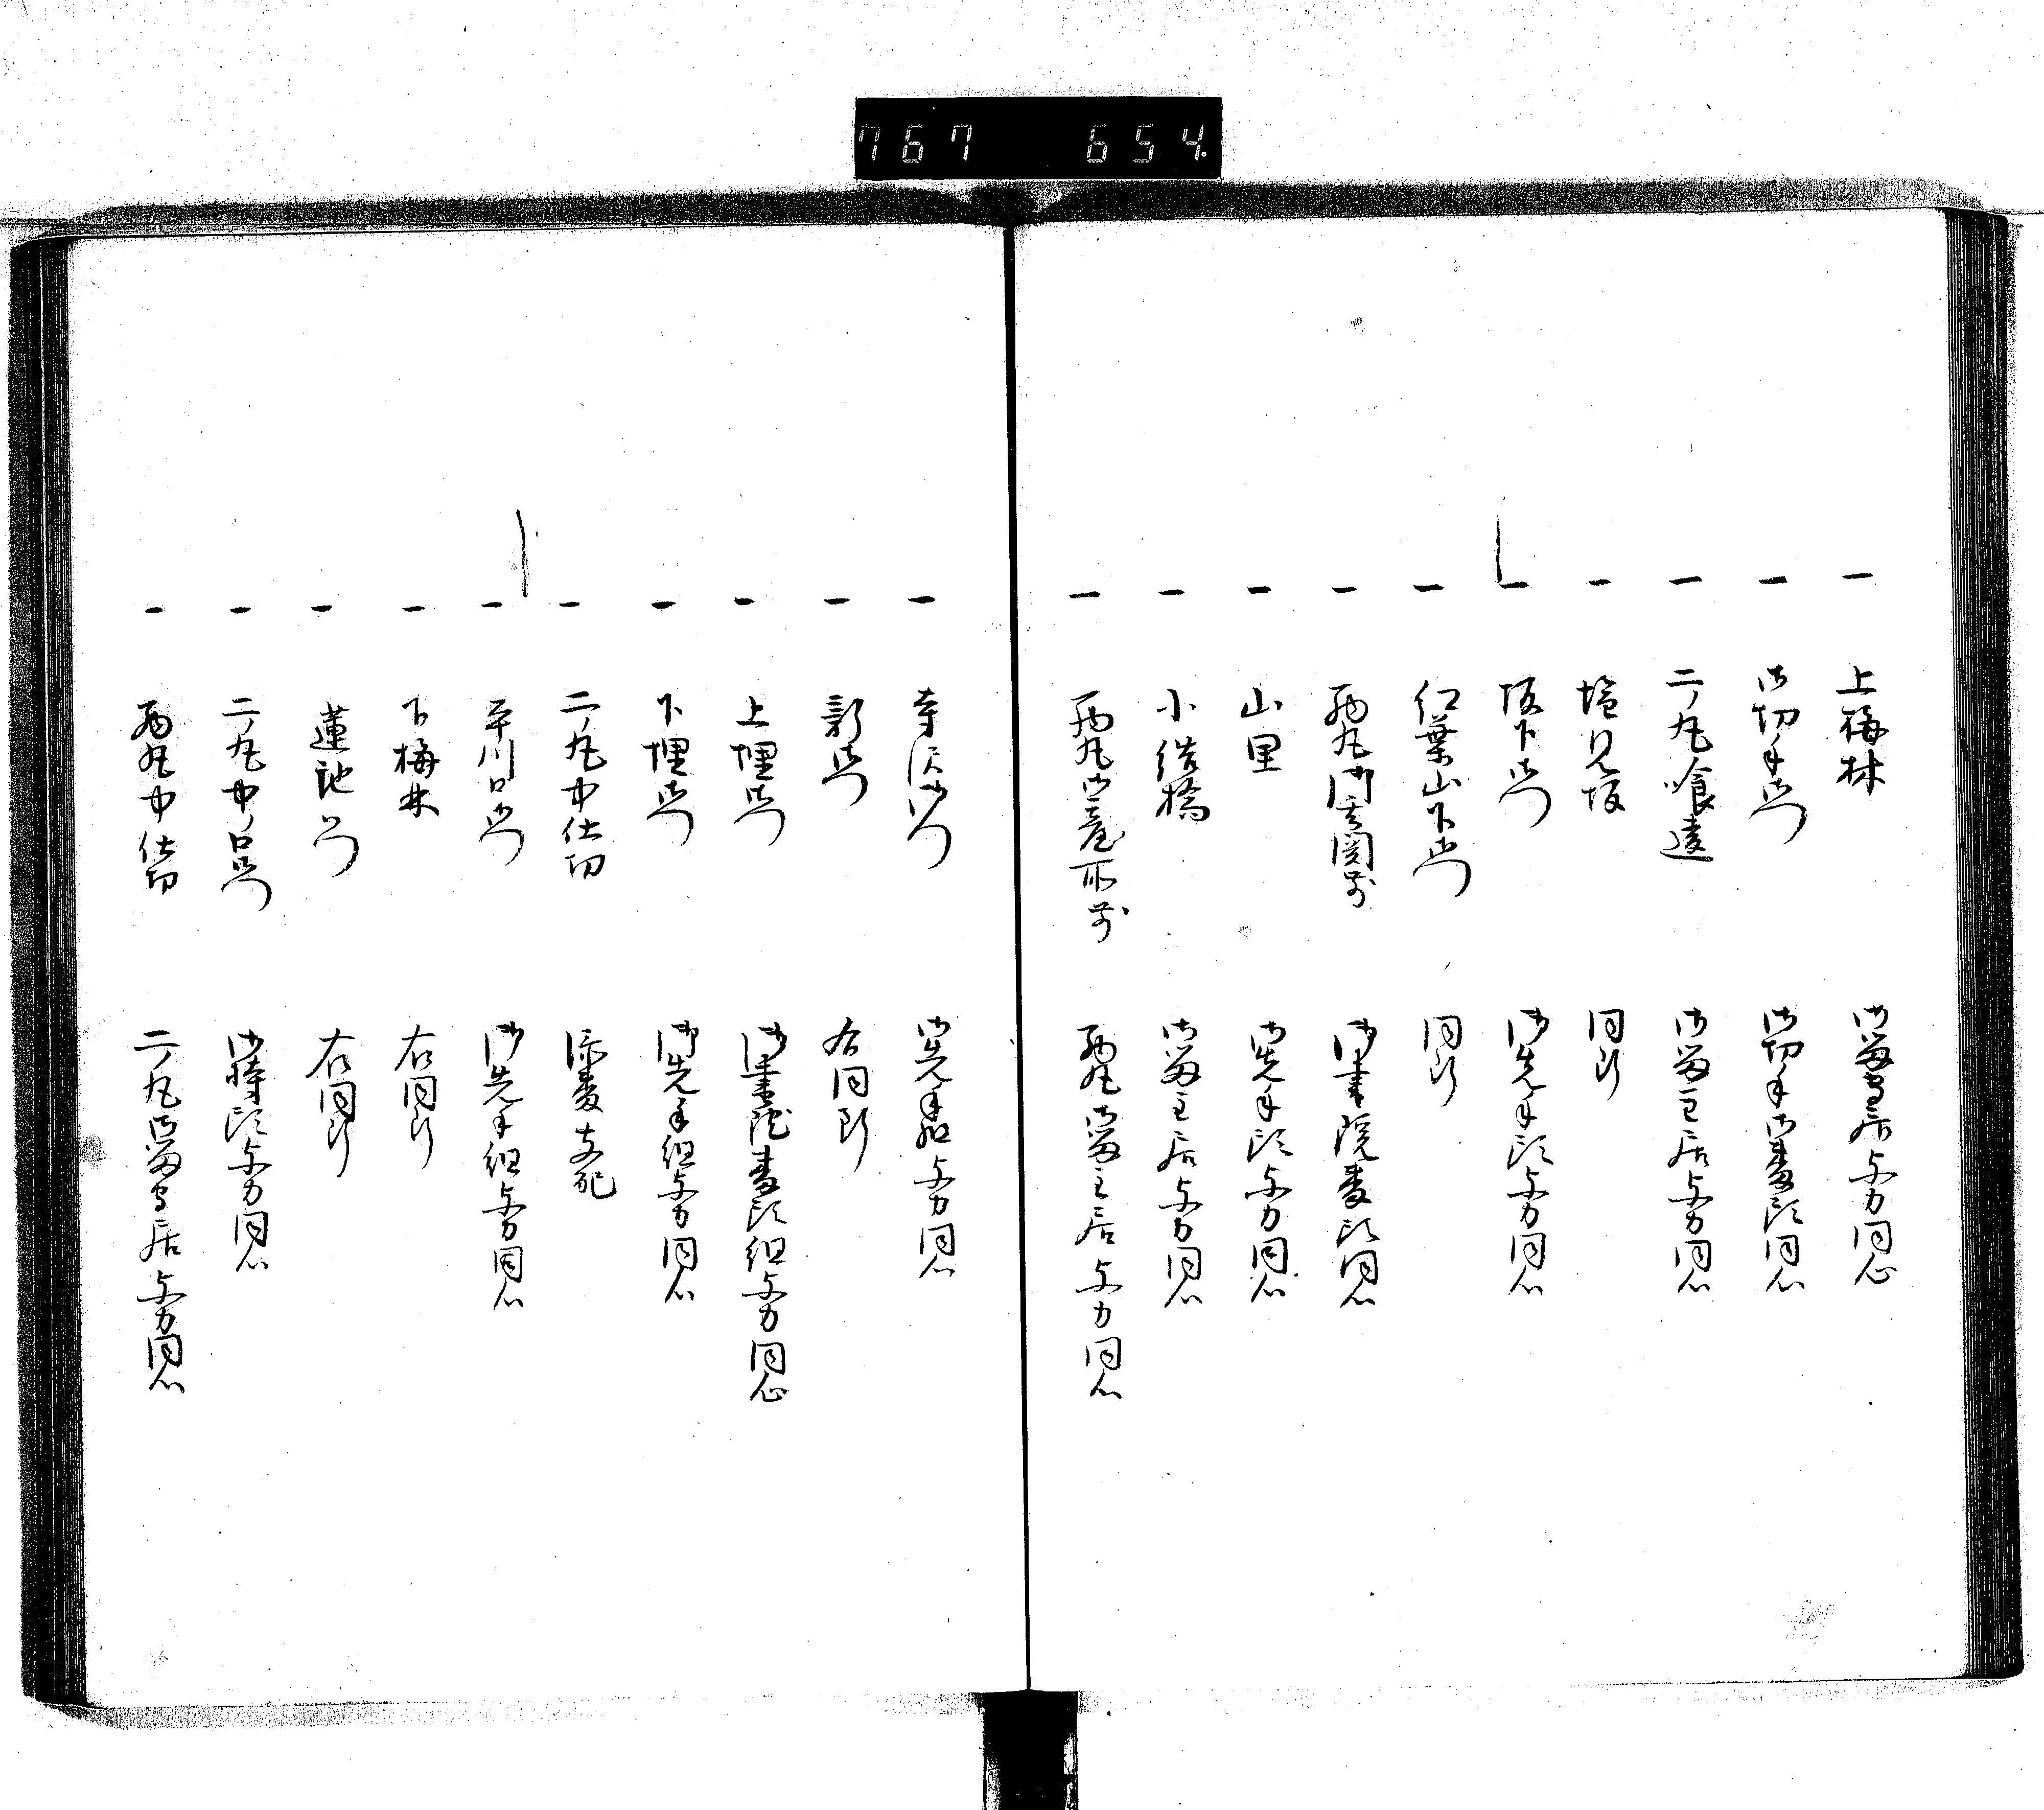 767 654.
一 上梅林 御留守居与力同心
一 御切手御門 御切手御番頭同心
一 二ノ丸喰違 御留主居与力同心
一 塩見坂 同断
一 坂下御門 御先手頭与力同心
一 紅葉山下御門 同断
一 西丸御玄関前 御書院番頭同心
一 山里 御先手頭与力同心
一 小结橋 御留主居与力同心
一 西丸御臺所前 西丸御留主居与力同心
一 寺沢御門 御先手組与力同心
一 新御門 右同断
一 上埋御門 御書院番頭組与力同心
一 下埋御門 御先手組与力同心
一 二ノ丸中仕切 添番支配
一 平川口御門 御先手組与力同心
一 下梅林 右同断
一 蓮池御門 右同断
一 二ノ丸中ノ口御門 御持頭与力同心
一 西丸中仕切 二ノ丸御留守居与力同心